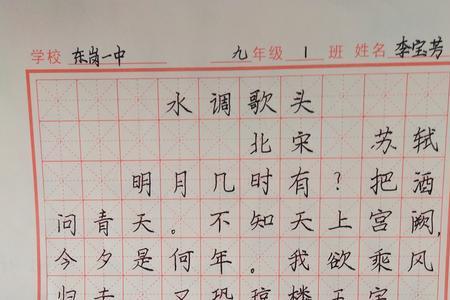 学校 东岗一中 九 年级 1 班 姓名 李宝芳
水调歌头
北宋 苏轼
明月几时有？把酒
问青天。不知天上宫阙，
今夕是何年。我欲乘风
归去 又恐琼楼玉宇